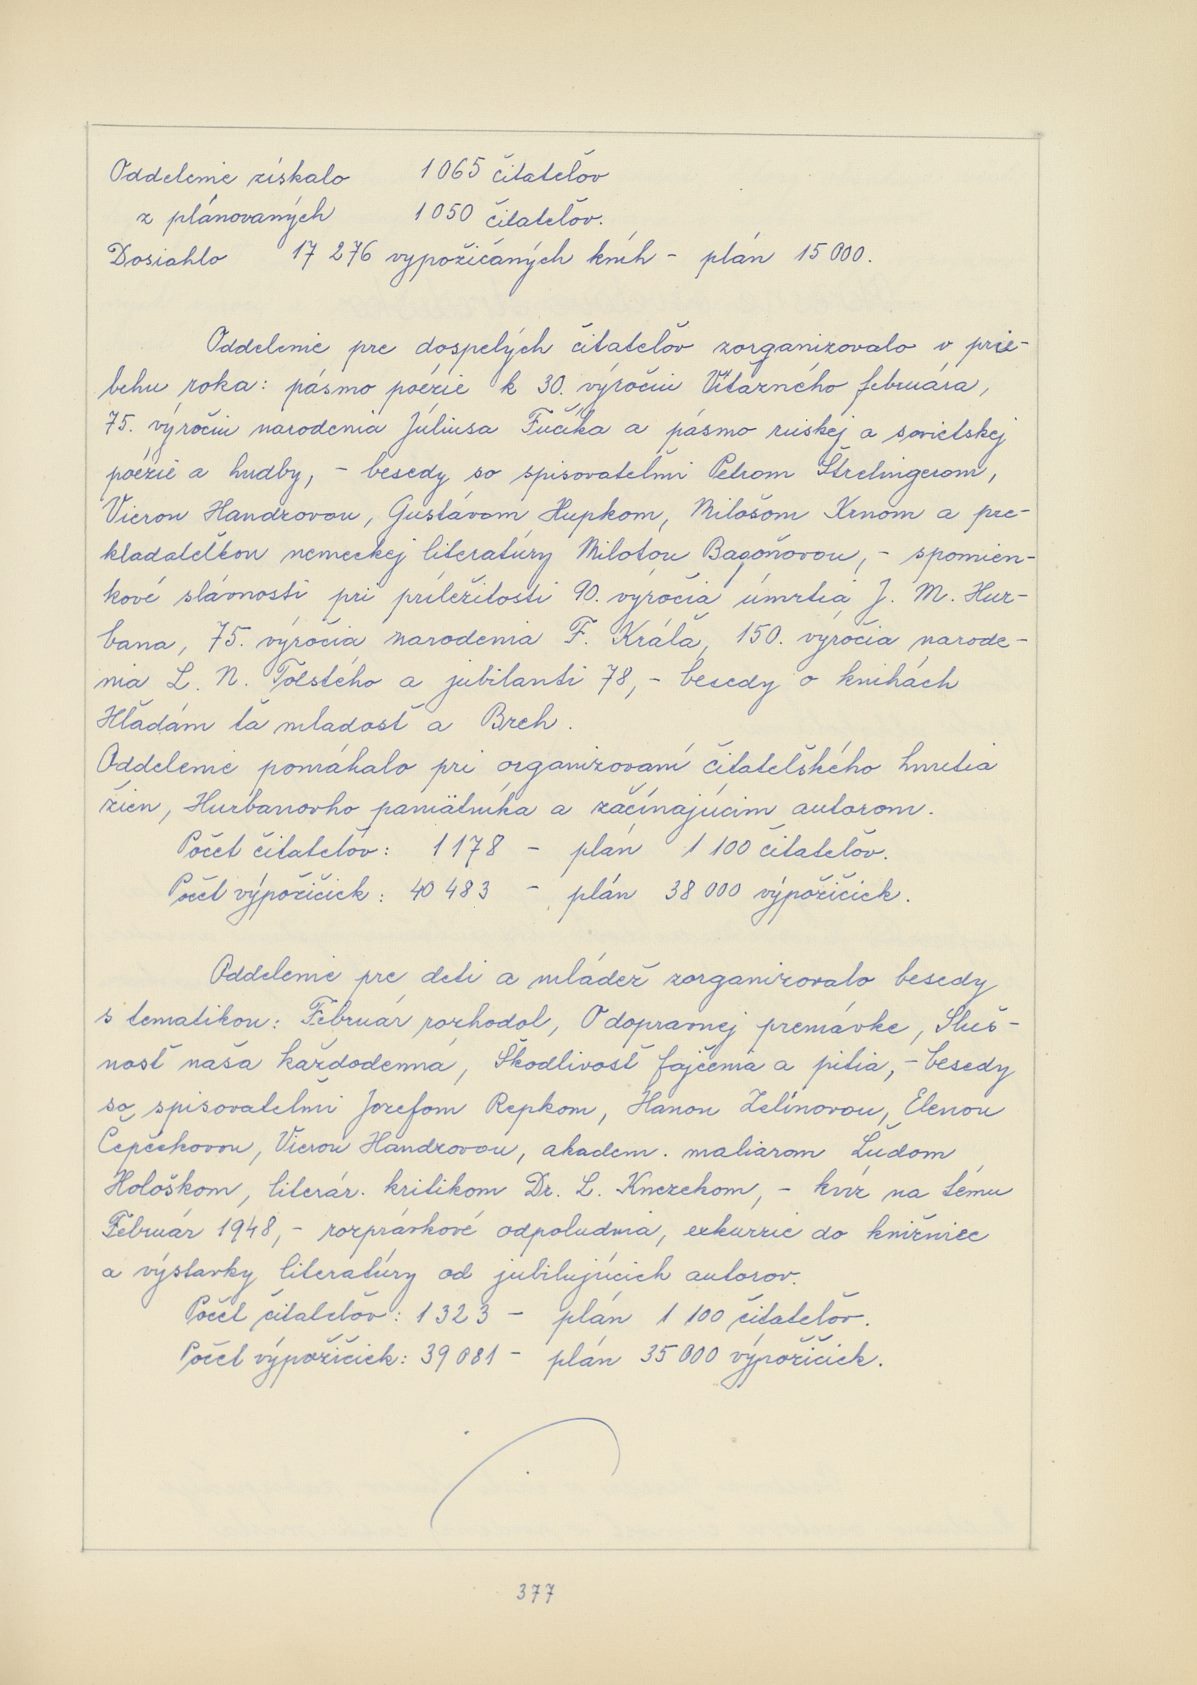 Oddelenie získalo 1 065 čitateľov
z plánovaných 1 050 čitateľov.
Dosiahlo 17 276 vypožičaných kníh – plán 15 000.
Oddelenie pre dospelých čitateľov zorganizovalo v prie-
behu roka: pásmo poézie k 30. výročiu Víťazného februára,
75. výročiu narodenia Júliusa Fučíka a pásmo ruskej a sovietskej
poézie a hudby, – besedy so spisovateľmi Petrom Štrelingerom,
Vierou Handzovou, Gustávom Hupkom, Milošom Krnom a pre-
kladateľkou nemeckej literatúry Milotou Bagoňovou, – spomien-
kové slávnosti pri príležitosti 90. výročia úmrtia J. M. Hur-
bana, 75. výročia narodenia F. Kráľa, 150. výročia narode-
nia L. N. Tolstého a jubilanti 78, – besedy o knihách
Hľadám ťa mladosť a Breh.
Oddelenie pomáhalo pri organizovaní čitateľského hnutia
žien, Hurbanovho pamätníka a začínajúcim autorom.
Počet čitateľov: 1178 – plán 1 100 čitateľov.
Počet výpožičiek: 40 483 – plán 38 000 výpožičiek.
Oddelenie pre deti a mládež zorganizovalo besedy
s tematikou: Február rozhodol, O dopravnej premávke, Sluš-
nosť naša každodenná, Škodlivosť fajčenia a pitia, – besedy
so spisovateľmi Jozefom Repkom, Hanou Zelinovou, Elenou
Čepčekovou, Vierou Handzovou, akadem. maliarom Ľudom
Hološkom, literár. kritikom Dr. L. Knezekom, – kvíz na tému
Február 1948, – rozprávkové odpoludnia, exkurzie do knižniec
a výstavky literatúry od jubilujúcich autorov.
Počet čitateľov: 1 323 – plán 1 100 čitateľov.
Počet výpožičiek: 39 081 – plán 35 000 výpožičiek.
377